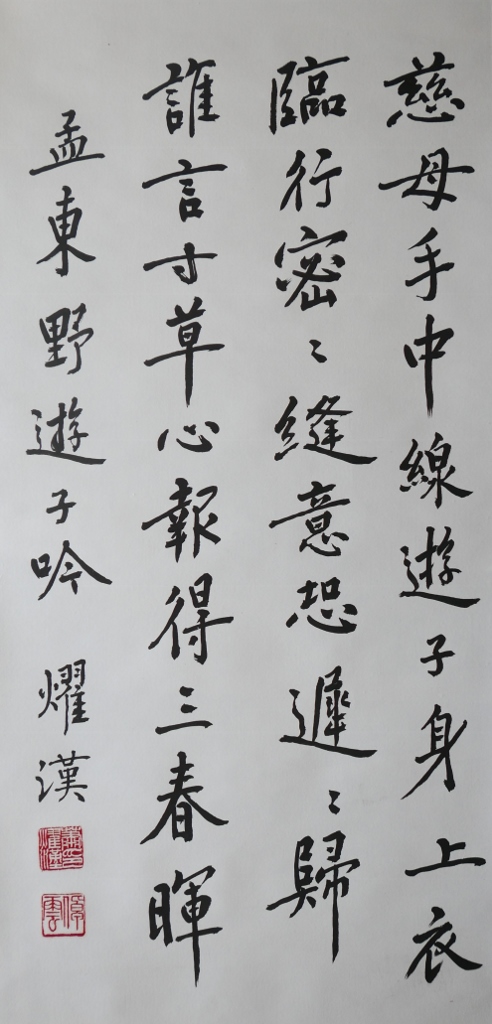 慈母手中線遊子身上衣
臨行密〻縫意恐遲〻歸
誰言寸草心報得三春暉
孟東野遊子吟 燿漢